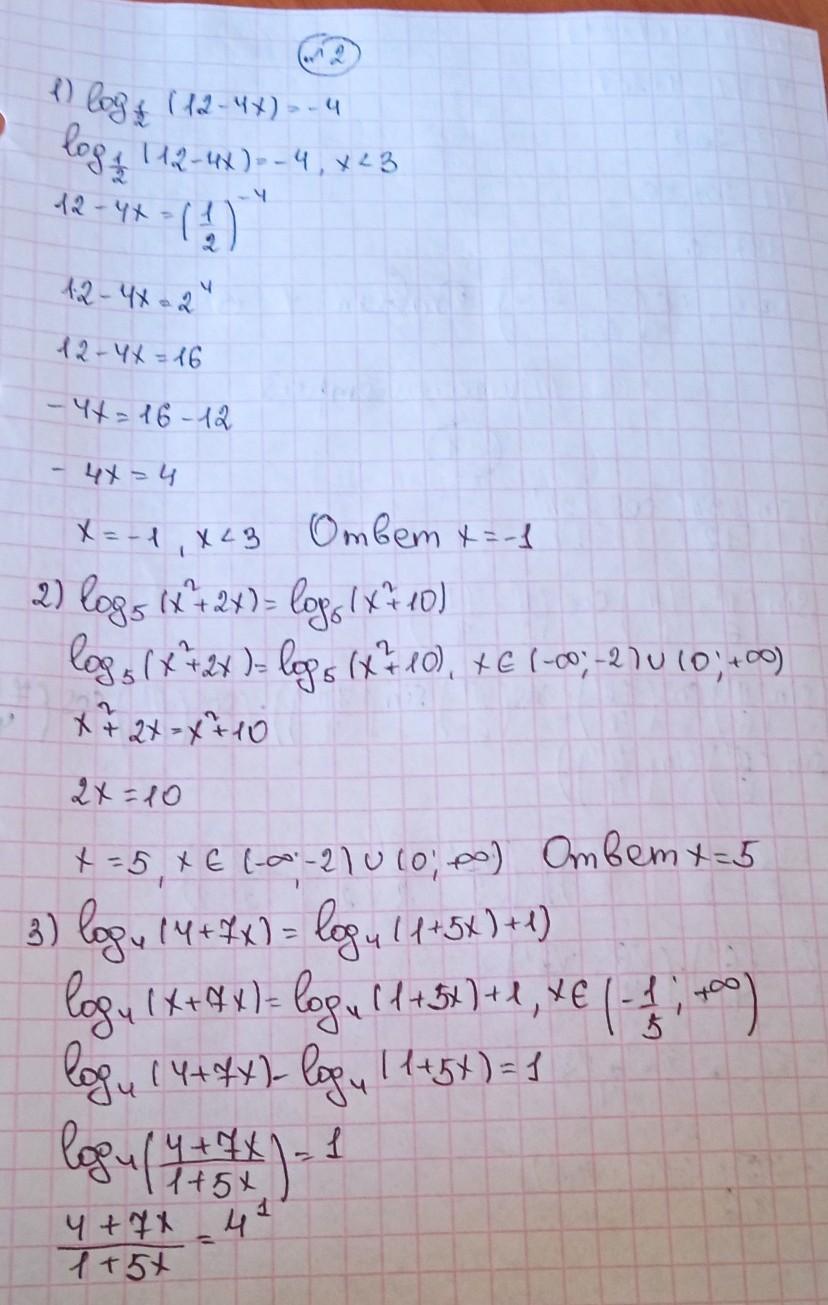 №2
1) log_{1/2} (12-4x)=-4
log_{1/2} (12-4x)=-4, x<3
12-4x=(1/2)^{-4}
12-4x=2^4
12-4x=16
-4x=16-12
-4x=4
x=-1, x<3 Ответ x=-1
2) log_5 (x²+2x)=log_5 (x²+10)
log_5 (x²+2x)=log_5 (x²+10), x∈(-∞;-2)∪(0;+∞)
x²+2x=x²+10
2x=10
x=5, x∈(-∞;-2)∪(0;+∞) Ответ x=5
3) log_4 (4+7x)=log_4 (1+5x)+1)
log_4 (x+7x)=log_4 (1+5x)+1, x∈(-1/5;+∞)
log_4 (4+7x)-log_4 (1+5x)=1
log_4 ((4+7x)/(1+5x))=1
(4+7x)/(1+5x)=4^1